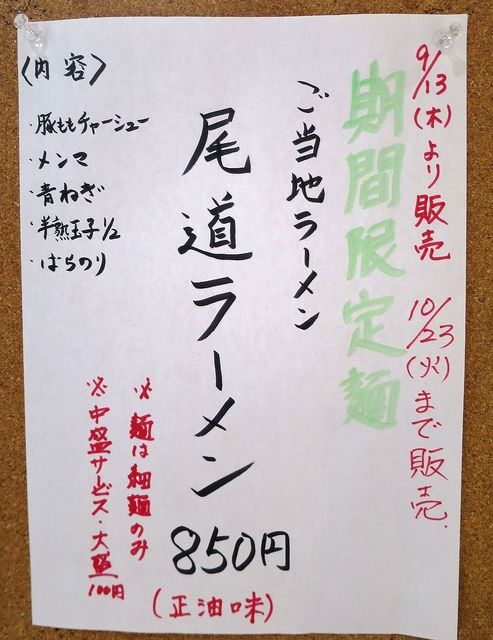 9/13(木)より販売 10/23(火)まで販売.
期間限定麺
ご当地ラーメン
尾道ラーメン
850円
(正油味)
〈内容〉
・豚ももチャーシュー
・メンマ
・青ねぎ
・半熟玉子1/2
・ばらのり
※麺は細麺のみ
※中盛サービス・大盛100円